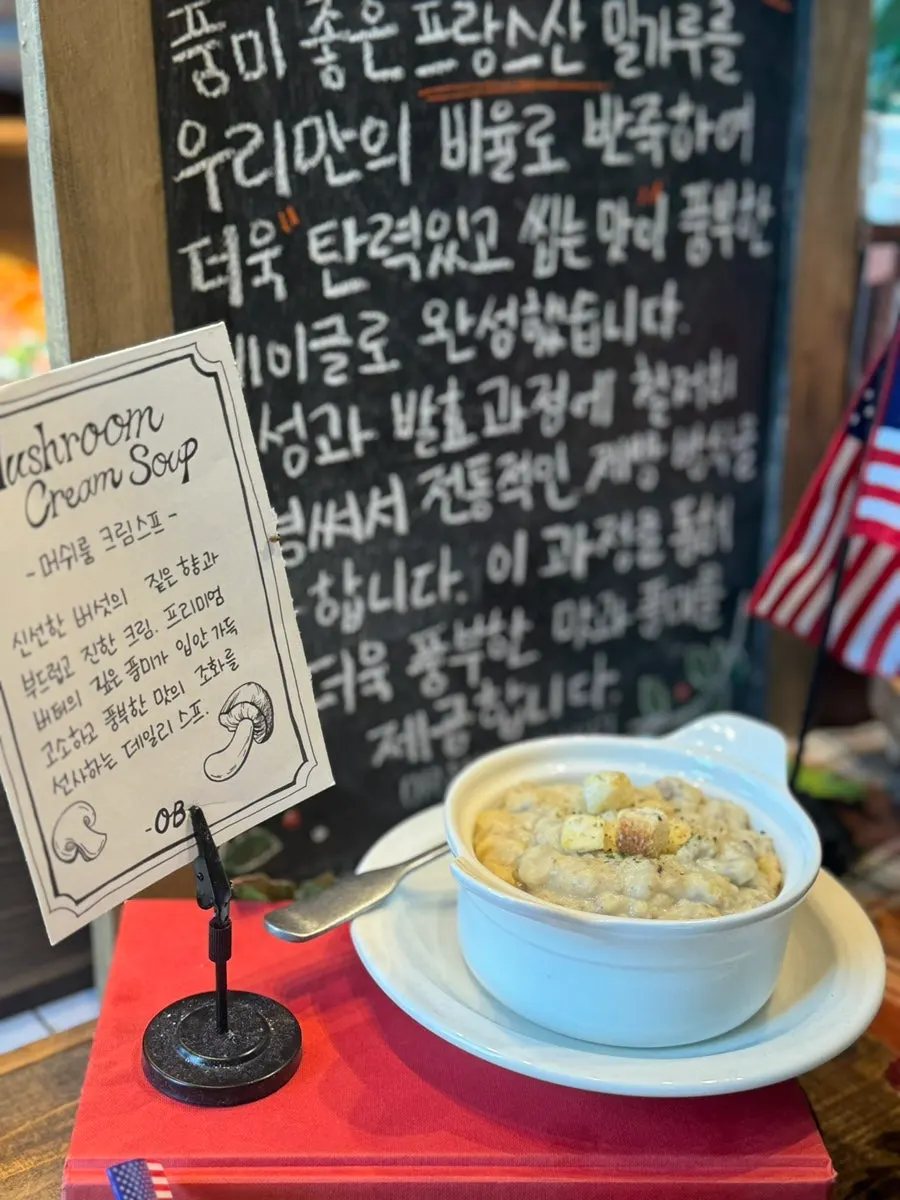 풍미 좋은 프랑스산 밀가루를
우리만의 비율로 반죽하여
더욱 탄력있고 씹는 맛이 풍부한
이글로 완성했습니다.
성과 발효과정에 철저히
힘써서 전통적인 제빵 방식을
합니다. 이 과정을 통해
더욱 풍부한 맛과 풍미를
제공합니다.
Mushroom
Cream Soup
-머쉬룸 크림스프-
신선한 버섯의 짙은 향과
부드럽고 진한 크림. 프리미엄
버터의 깊은 풍미가 입안 가득
고소하고 풍부한 맛의 조화를
선사하는 데일리 스프.